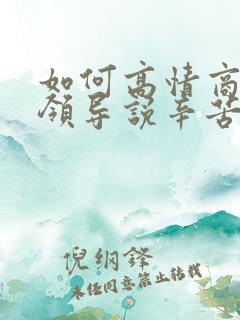 如何高情商
领导说辛苦
倪纲锋
未经同意禁止转载